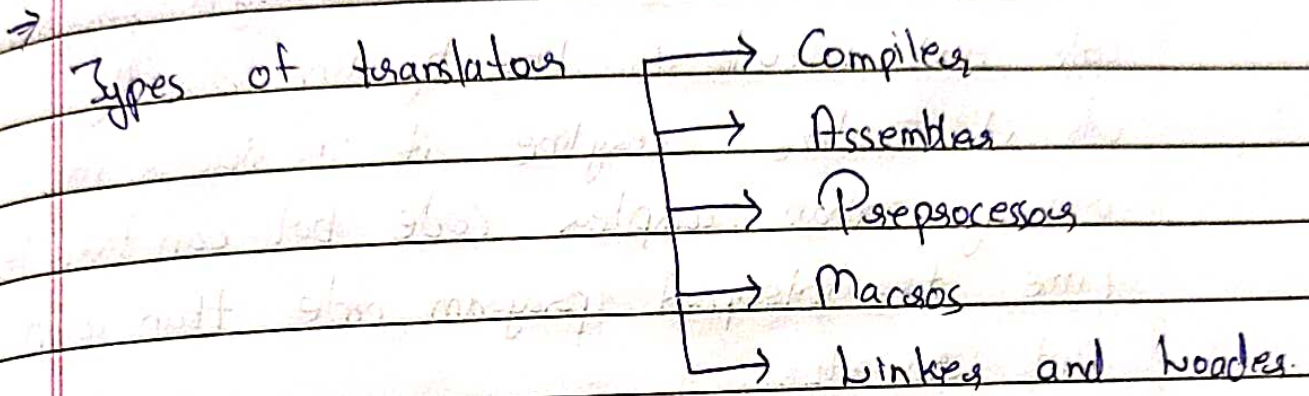 ⇒
Types of translator → Compiler
→ Assembler
→ Preprocessor
→ Macros
→ Linker and Loader.